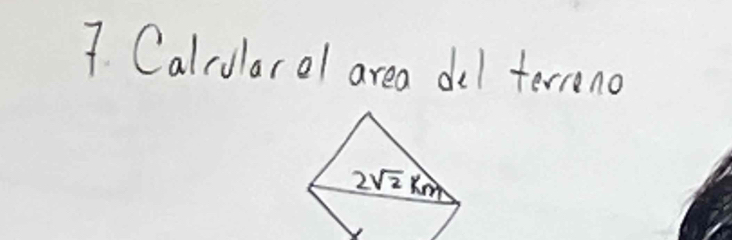 7. Calcular el area del terreno
2√2 Km